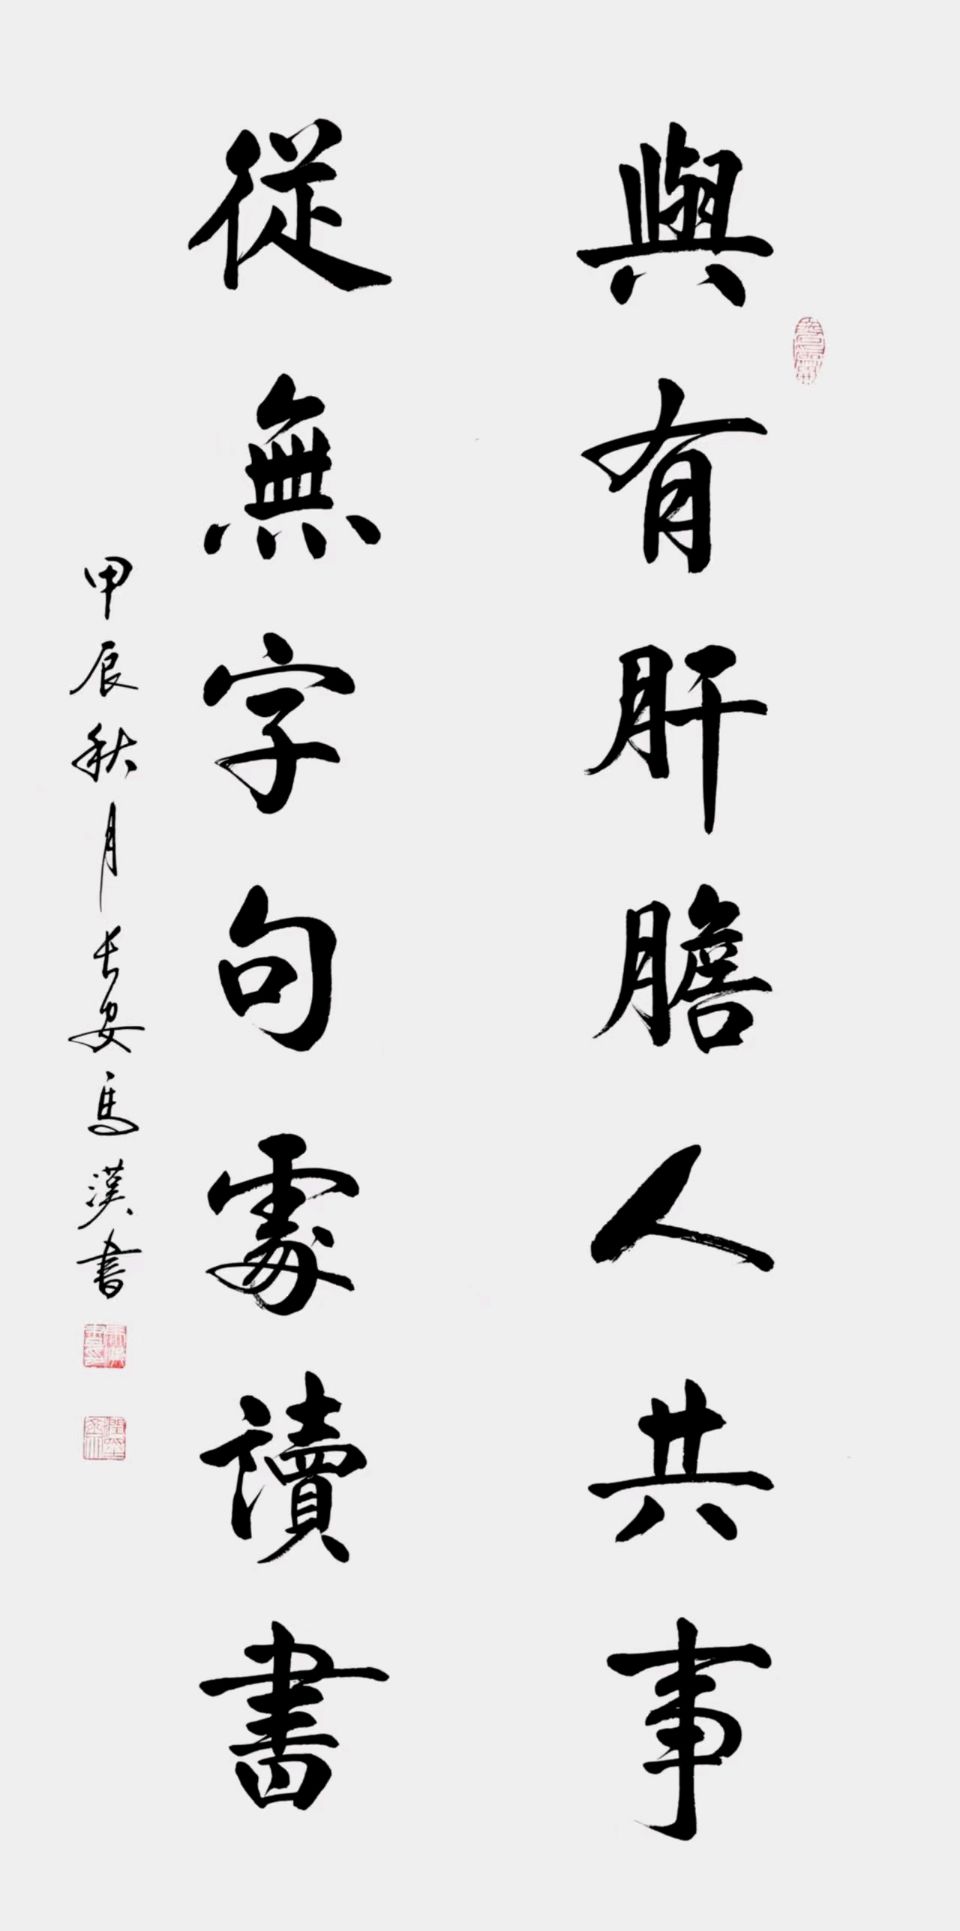 與有肝膽人共事
從無字句處讀書
甲辰秋月長安馬漢書